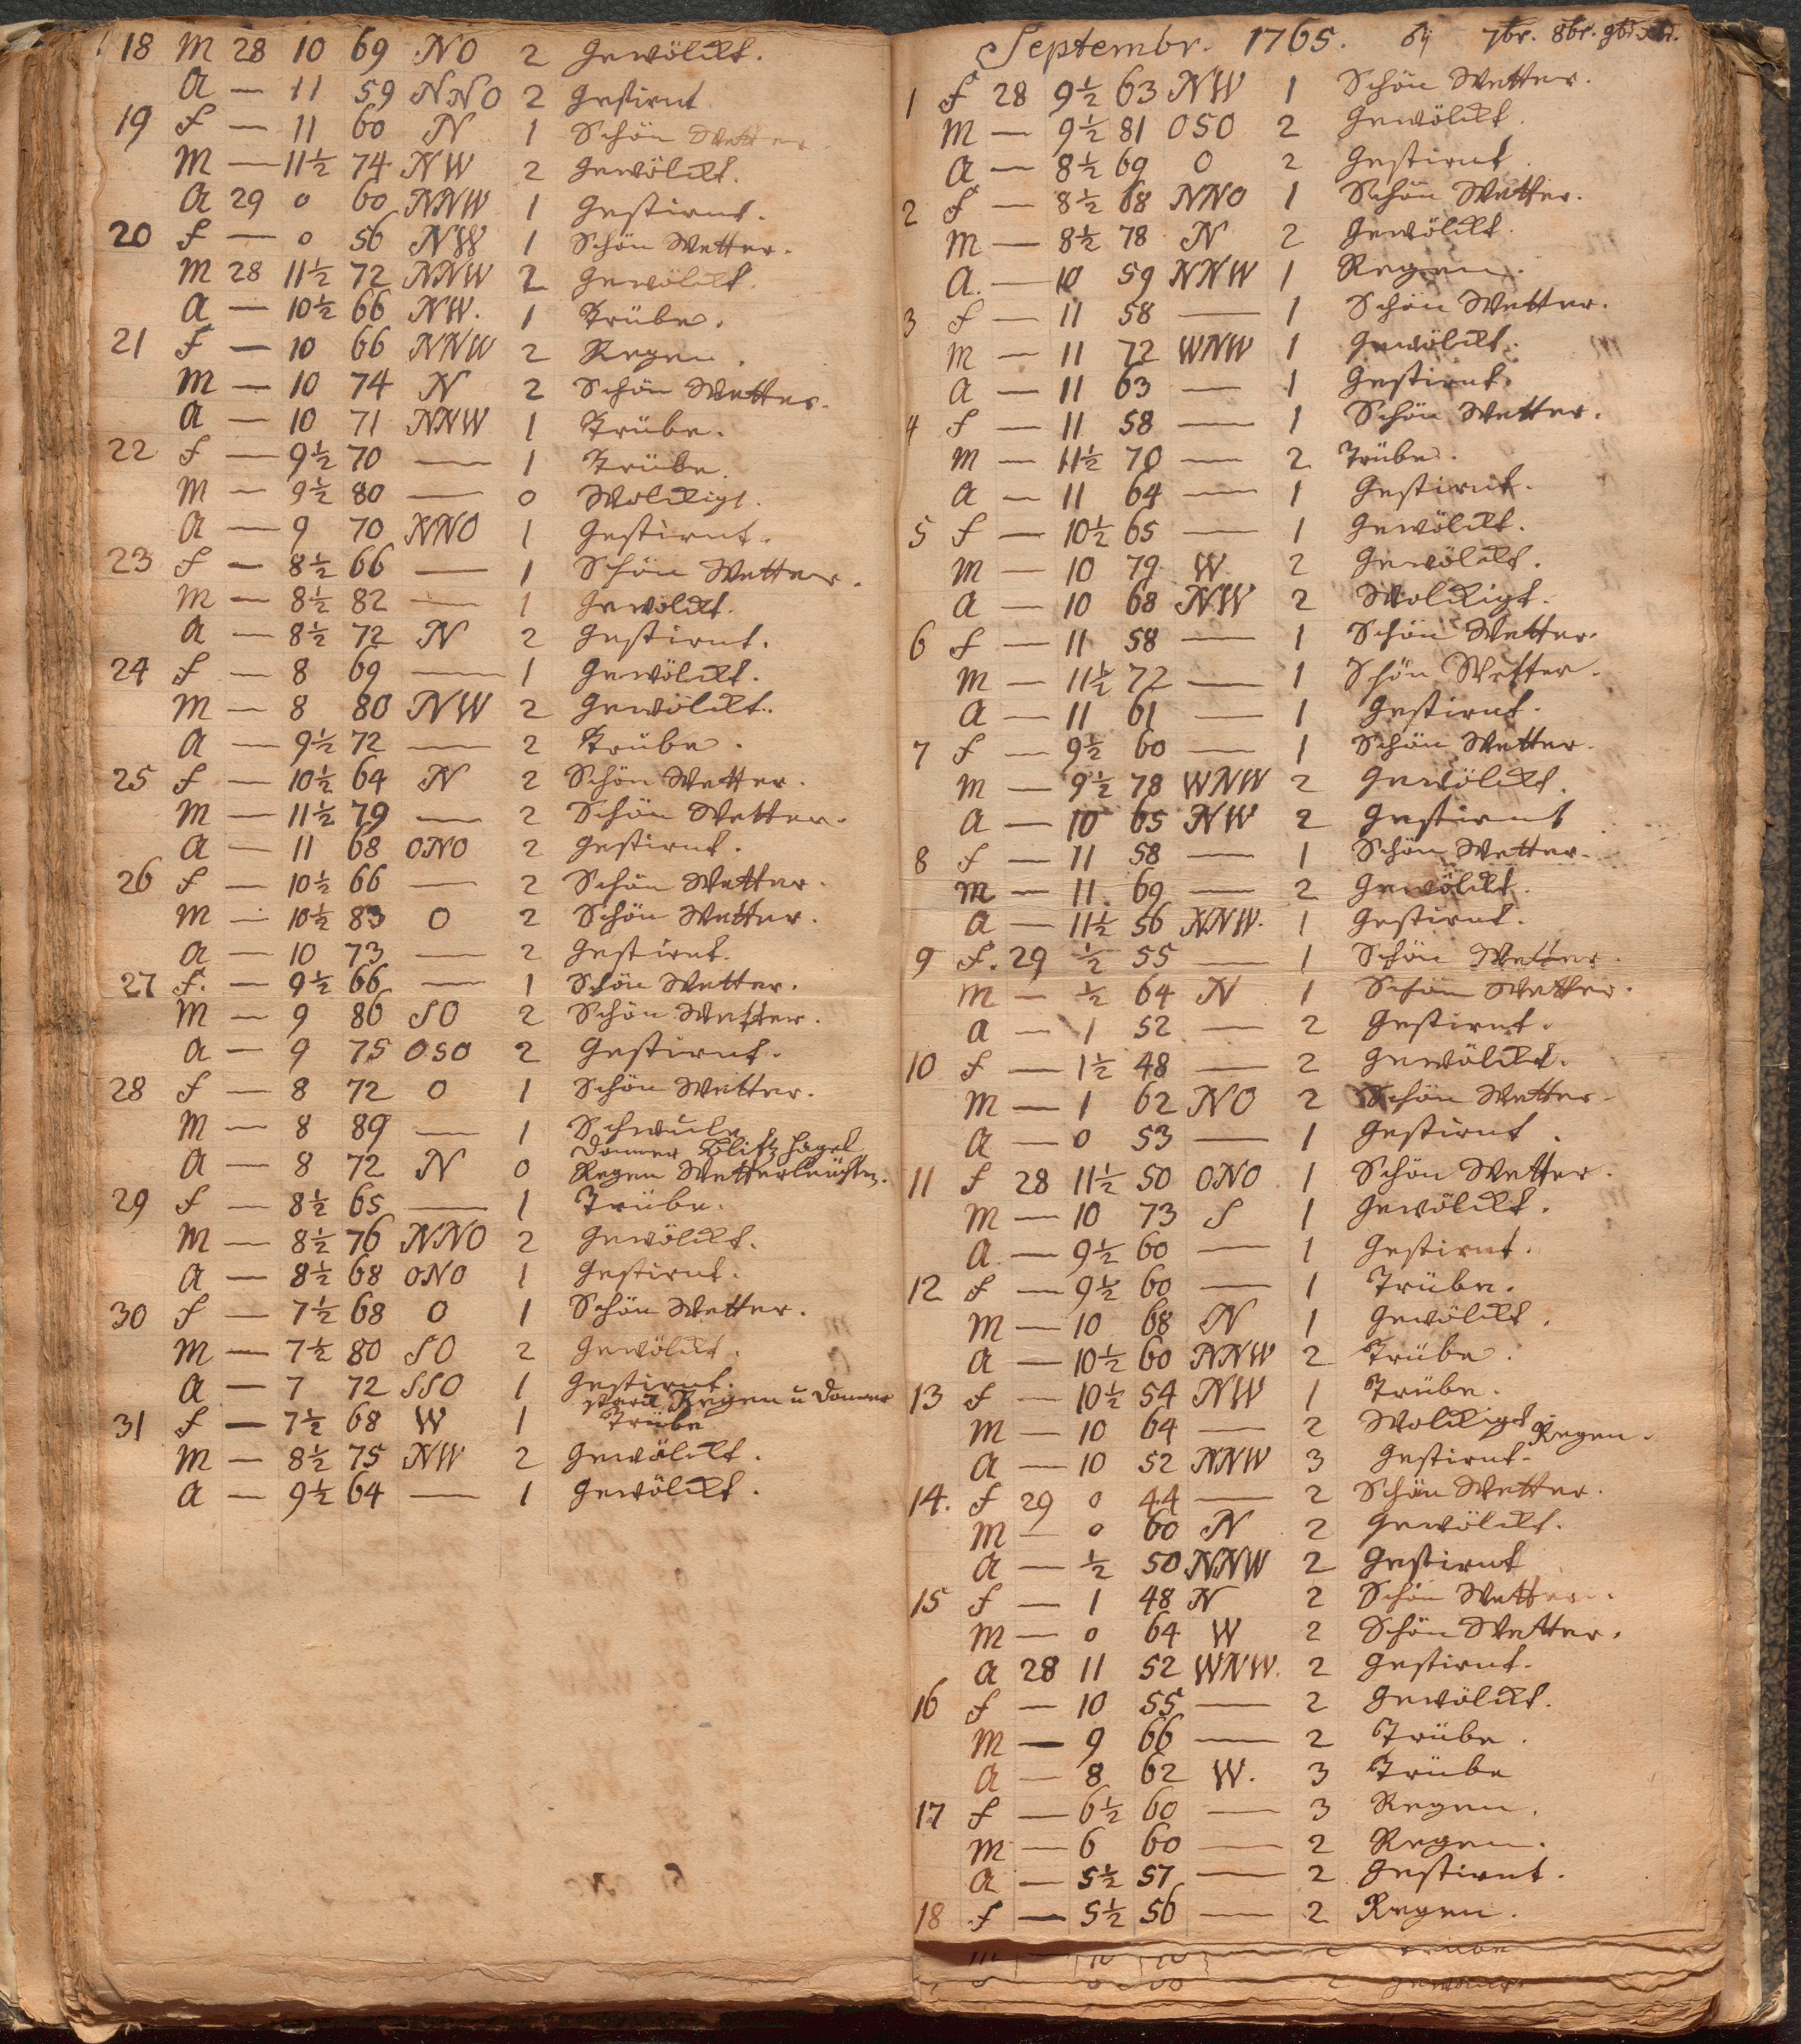 18 M 28 10 69 NO 2 Gewölckt.
A — 11 59 NNO 2 Gestirnt
19 f — 11 60 N 1 Schön Wetter.
M — 11½ 74 NW 2 Gewölckt.
A 29 0 60 NNW 1 Gestirnt.
20 f — 0 56 NW 1 Schön Wetter.
M 28 11½ 72 NNW 2 Gewölckt.
A — 10½ 66 NW. 1 Trübe.
21 f — 10 66 NNW 2 Regen.
M — 10 74 N 2 Schön Wetter.
A — 10 71 NNW 1 Trübe.
22 f — 9½ 70 — 1 Trübe
M — 9½ 80 — 0 Wolckigt.
A — 9 70 NNO 1 Gestirnt.
23 f — 8½ 66 — 1 Schön Wetter.
M — 8½ 82 — 1 Gewölckt.
A — 8½ 72 N 2 Gestirnt.
24 f — 8 69 — 1 Gewölckt.
M — 8 80 NW 2 Gewölckt.
A — 9½ 72 — 2 Trübe.
25 f — 10½ 64 N 2 Schön Wetter.
M — 11½ 79 — 2 Schön Wetter.
A — 11 68 ONO 2 Gestirnt.
26 f — 10½ 66 — 2 Schön Wetter.
M — 10½ 83 O 2 Schön Wetter.
A — 10 73 — 2 Gestirnt.
27 f. — 9½ 66 — 1 Schön Wetter.
M — 9 86 SO 2 Schön Wetter.
A — 9 75 OSO 2 Gestirnt.
28 f — 8 72 O 1 Schön Wetter.
M — 8 89 — 1 Schwule
Donner Blitz Hagel
A — 8 72 N 0 Regen Wetterleuchten.
29 f — 8½ 65 — 1 Trübe.
M — 8½ 76 NNO 2 Gewölckt.
A — 8½ 68 ONO 1 Gestirnt.
30 f — 7½ 68 O 1 Schön Wetter.
M — 7½ 80 SO 2 Gewölckt.
A — 7 72 SSO 1 Gestirnt.
starck Regen u Donner
31 f — 7½ 68 W 1 Trübe
M — 8½ 75 NW 2 Gewölckt.
A — 9½ 64 — 1 Gewölckt.
Septembr. 1765. 7br. 8br. 9br.
1 f 28 9½ 63 NW 1 Schön Wetter.
M — 9½ 81 OSO 2 Gewölckt.
A — 8½ 69 O 2 Gestirnt.
2 f — 8½ 68 NNO 1 Schön Wetter.
M — 8½ 78 N 2 Gewölckt.
A. — 10 59 NNW 1 Regen.
3 f — 11 58 — 1 Schön Wetter.
M — 11 72 WNW 1 Gewölckt.
A — 11 63 — 1 Gestirnt.
4 f — 11 58 — 1 Schön Wetter.
M — 11½ 70 — 2 Trübe.
A — 11 64 — 1 Gestirnt.
5 f — 10½ 65 — 1 Gewölckt.
M — 10 79 W 2 Gewölckt.
A — 10 68 NW 2 Wolckigt.
6 f — 11 58 — 1 Schön Wetter.
M — 11½ 72 — 1 Schön Wetter.
A — 11 61 — 1 Gestirnt.
7 f — 9½ 60 — 1 Schön Wetter.
M — 9½ 78 WNW 2 Gewölckt.
A — 10 65 NW 2 Gestirnt
8 f — 11 58 — 1 Schön Wetter.
M — 11. 69 — 2 Gewölckt.
A — 11½ 56 NNW. 1 Gestirnt.
9 f. 29 ½ 55 — 1 Schön Wetter.
M — ½ 64 N 1 Schön Wetter.
A — 1 52 — 2 Gestirnt.
10 f — 1½ 48 — 2 Gewölckt.
M — 1 62 NO 2 Schön Wetter.
A — 0 53 — 1 Gestirnt.
11 f 28 11½ 50 ONO 1 Schön Wetter.
M — 10 73 S 1 Gewölckt.
A — 9½ 60 — 1 Gestirnt.
12 f — 9½ 60 — 1 Trübe.
M — 10 68 N 1 Gewölckt.
A — 10½ 60 NNW 2 Trübe.
13 f — 10½ 54 NW 1 Trübe.
M — 10 64 — 2 Wolckigt Regen.
A — 10 52 NNW 3 Gestirnt.
14. f 29 0 44 — 2 Schön Wetter.
M — 0 60 N 2 Gewölckt.
A — ½ 50 NNW 2 Gestirnt
15 f — 1 48 N 2 Schön Wetter.
M — 0 64 W 2 Schön Wetter.
A 28 11 52 WNW. 2 Gestirnt.
16 f — 10 55 — 2 Gewölckt.
M — 9 66 — 2 Trübe.
A — 8 62 W. 3 Trübe
17 f — 6½ 60 — 3 Regen.
M — 6 60 — 2 Regen.
A — 5½ 57 — 2 Gestirnt.
18 f — 5½ 56 — 2 Regen.